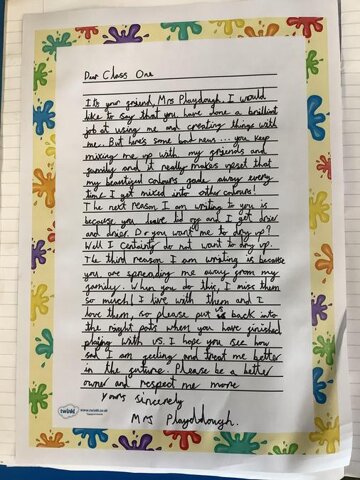 Dear Class One
It's your friend, Mrs Playdough. I would
like to say that you have done a brilliant
job at using me and creating things with
me. But here's some bad news... you keep
mixing me up with my friends and
family and it really makes upset that
my beautiful colours fade away every
time I get mixed into other colours!
The next reason I am writing to you is
because you leave lid off and I get drier
and drier. Do you want me to dry up?
Well I certainly do not want to dry up.
The third reason I am writing is because
you are spreading me away from my
family. When you do this, I miss them
so much! I live with them and I
love them, so please put us back into
the right pots when you have finished
playing with us. I hope you see how
sad I am feeling and treat me better
in the future. Please be a better
owner and respect me more
Yours sincerely
Mrs Playdough.
twinkl www.twinkl.co.uk